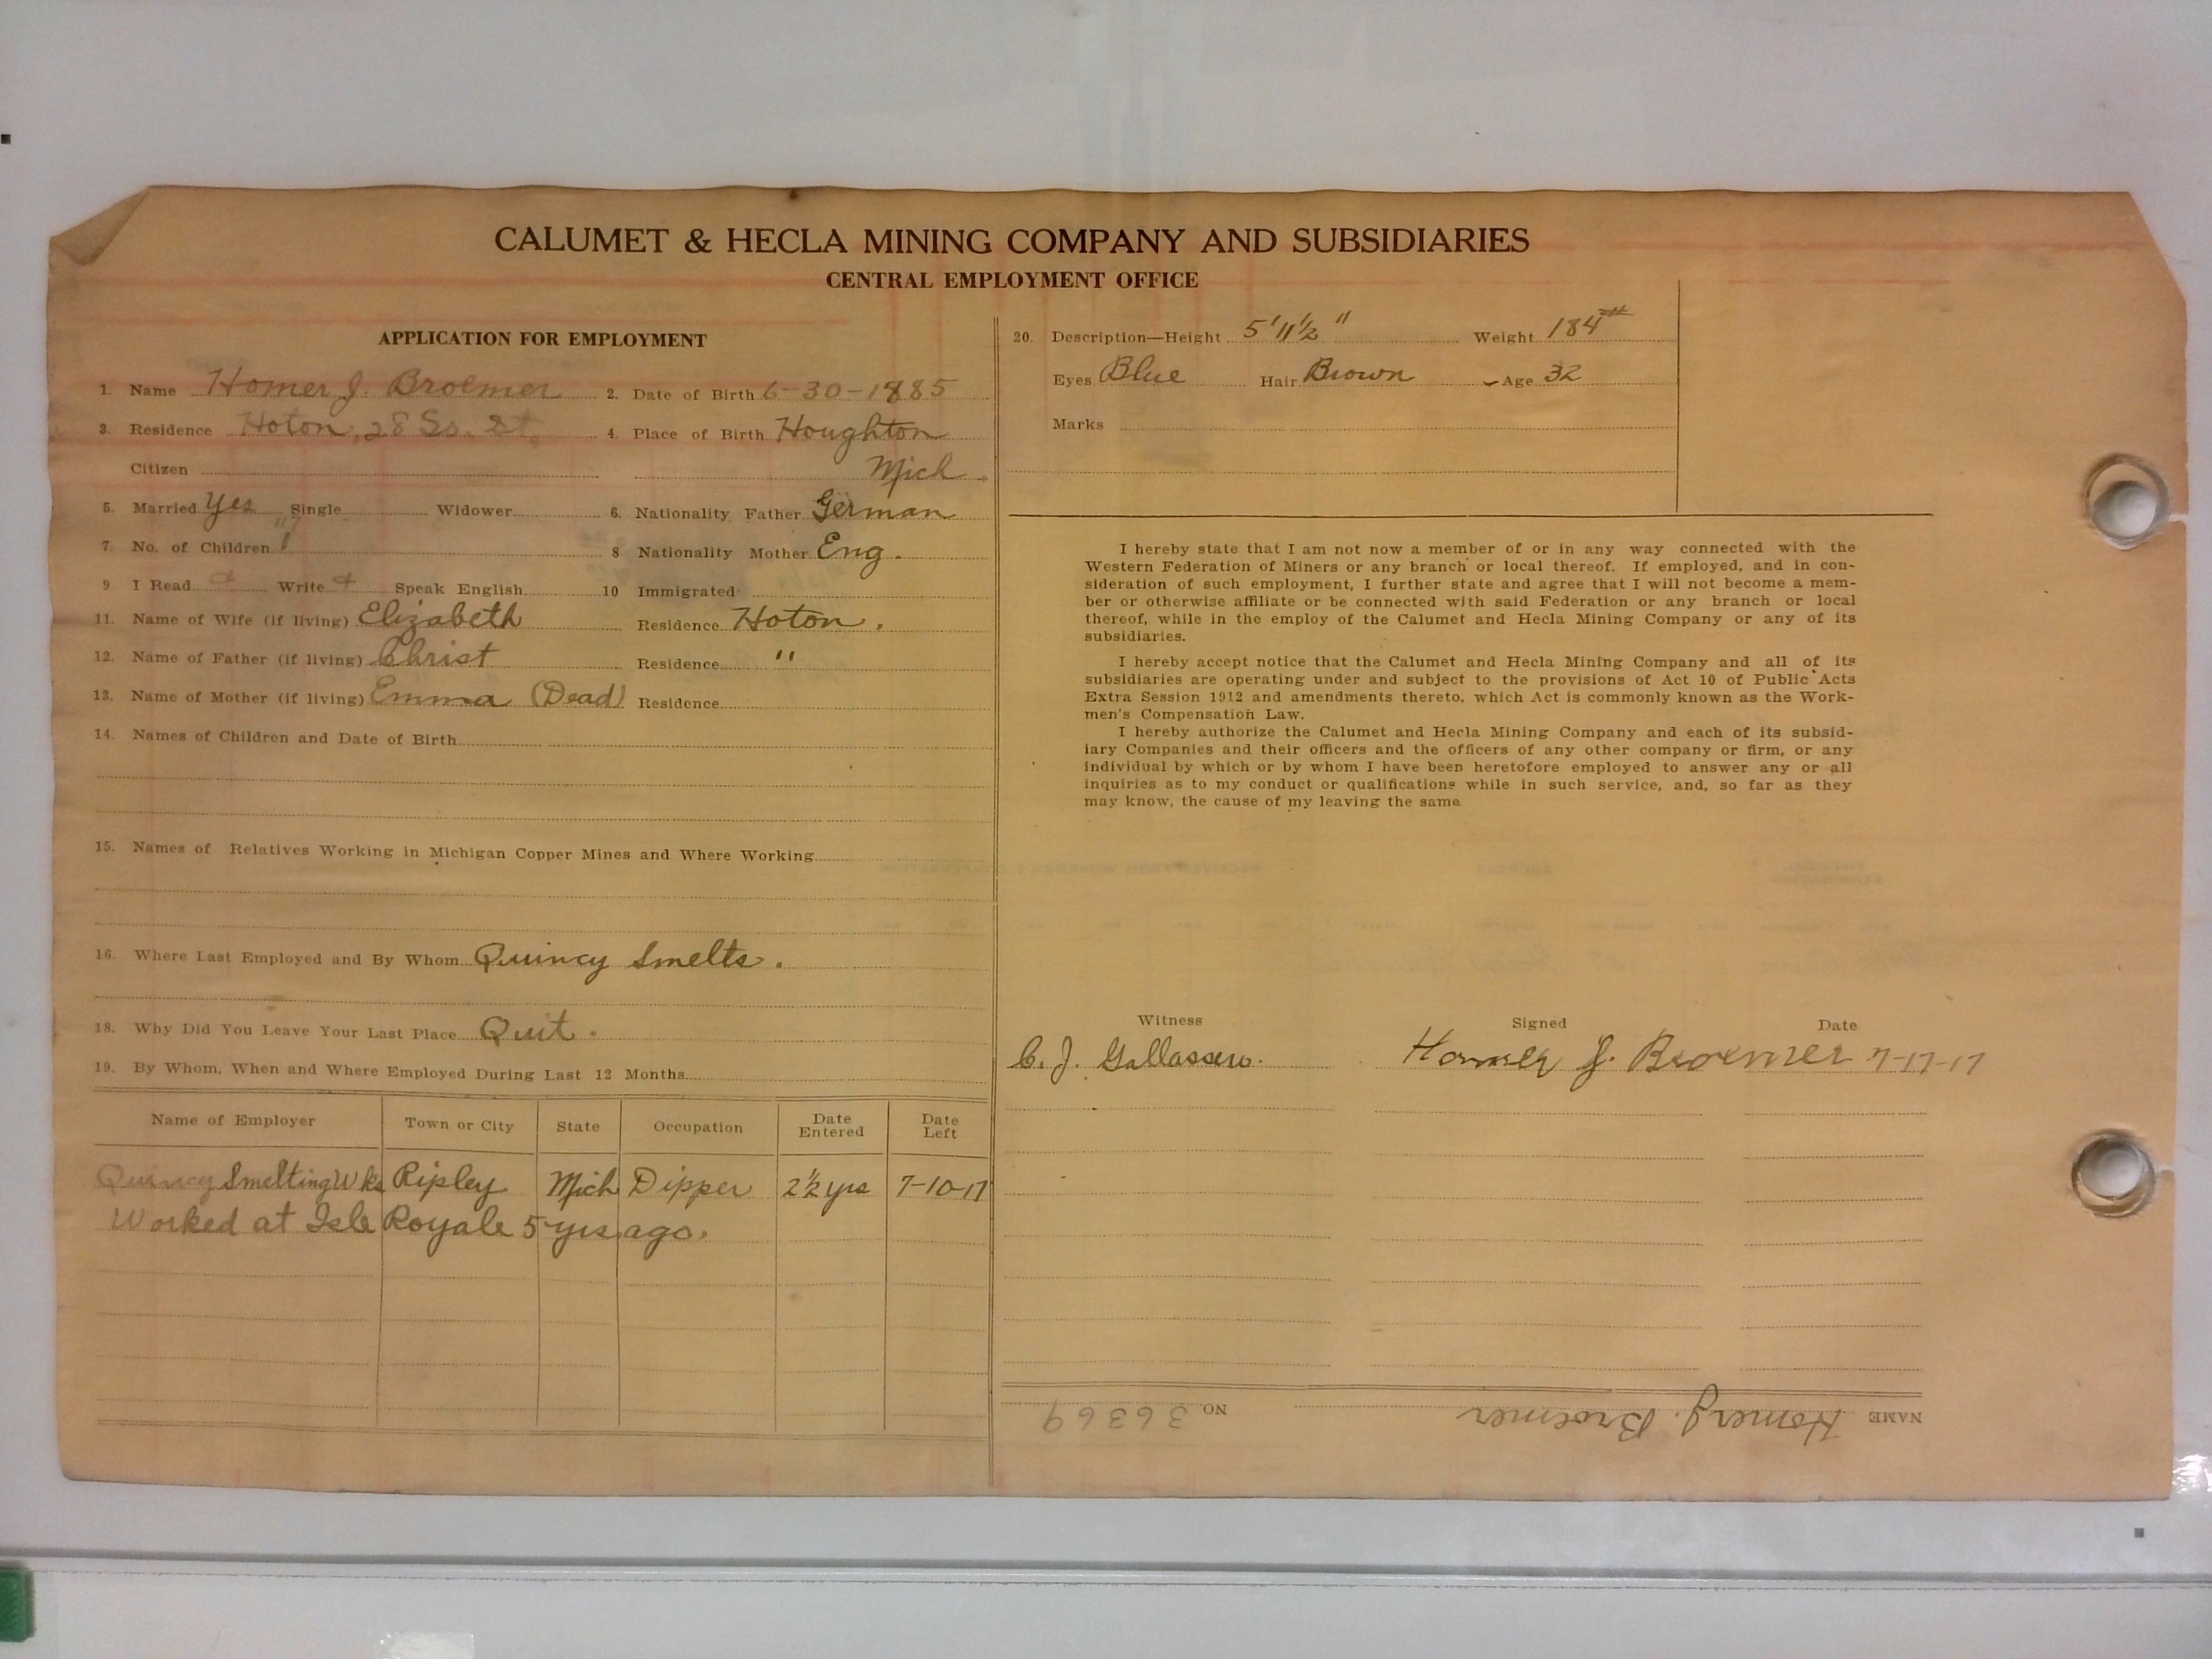 CALUMET & HECLA MINING COMPANY AND SUBSIDIARIES
CENTRAL EMPLOYMENT OFFICE
APPLICATION FOR EMPLOYMENT
1. Name Homer J. Broemer 2. Date of Birth 6-30-1885
3. Residence Hoton, 28 So. St. 4. Place of Birth Houghton
Citizen Mich
5. Married Yes Single Widower 6. Nationality Father German
7. No. of Children 1 8 Nationality Mother Eng.
9 I Read Write Speak English 10 Immigrated
11. Name of Wife (if living) Elizabeth Residence Hoton.
12. Name of Father (if living) Christ Residence "
13. Name of Mother (if living) Emma (Dead) Residence
14. Names of Children and Date of Birth
15. Names of Relatives Working in Michigan Copper Mines and Where Working
16. Where Last Employed and By Whom Quincy Smelts.
18. Why Did You Leave Your Last Place Quit.
19. By Whom, When and Where Employed During Last 12 Months
Name of Employer Town or City State Occupation Date Entered Date Left
Quincy Smelting Wks Ripley Mich Dipper 2½ yrs 7-10-17
Worked at Isle Royale 5 yrs ago.
20. Description—Height 5' 11½" Weight 184#
Eyes Blue Hair Brown Age 32
Marks
I hereby state that I am not now a member of or in any way connected with the
Western Federation of Miners or any branch or local thereof. If employed, and in con-
sideration of such employment, I further state and agree that I will not become a mem-
ber or otherwise affiliate or be connected with said Federation or any branch or local
thereof, while in the employ of the Calumet and Hecla Mining Company or any of its
subsidiaries.
I hereby accept notice that the Calumet and Hecla Mining Company and all of its
subsidiaries are operating under and subject to the provisions of Act 10 of Public Acts
Extra Session 1912 and amendments thereto, which Act is commonly known as the Work-
men's Compensation Law.
I hereby authorize the Calumet and Hecla Mining Company and each of its subsid-
iary Companies and their officers and the officers of any other company or firm, or any
individual by which or by whom I have been heretofore employed to answer any or all
inquiries as to my conduct or qualifications while in such service, and, so far as they
may know, the cause of my leaving the same
Witness Signed Date
C. J. Homer J. Broemer 7-17-17
NAME Homer J. Broemer NO. 36369